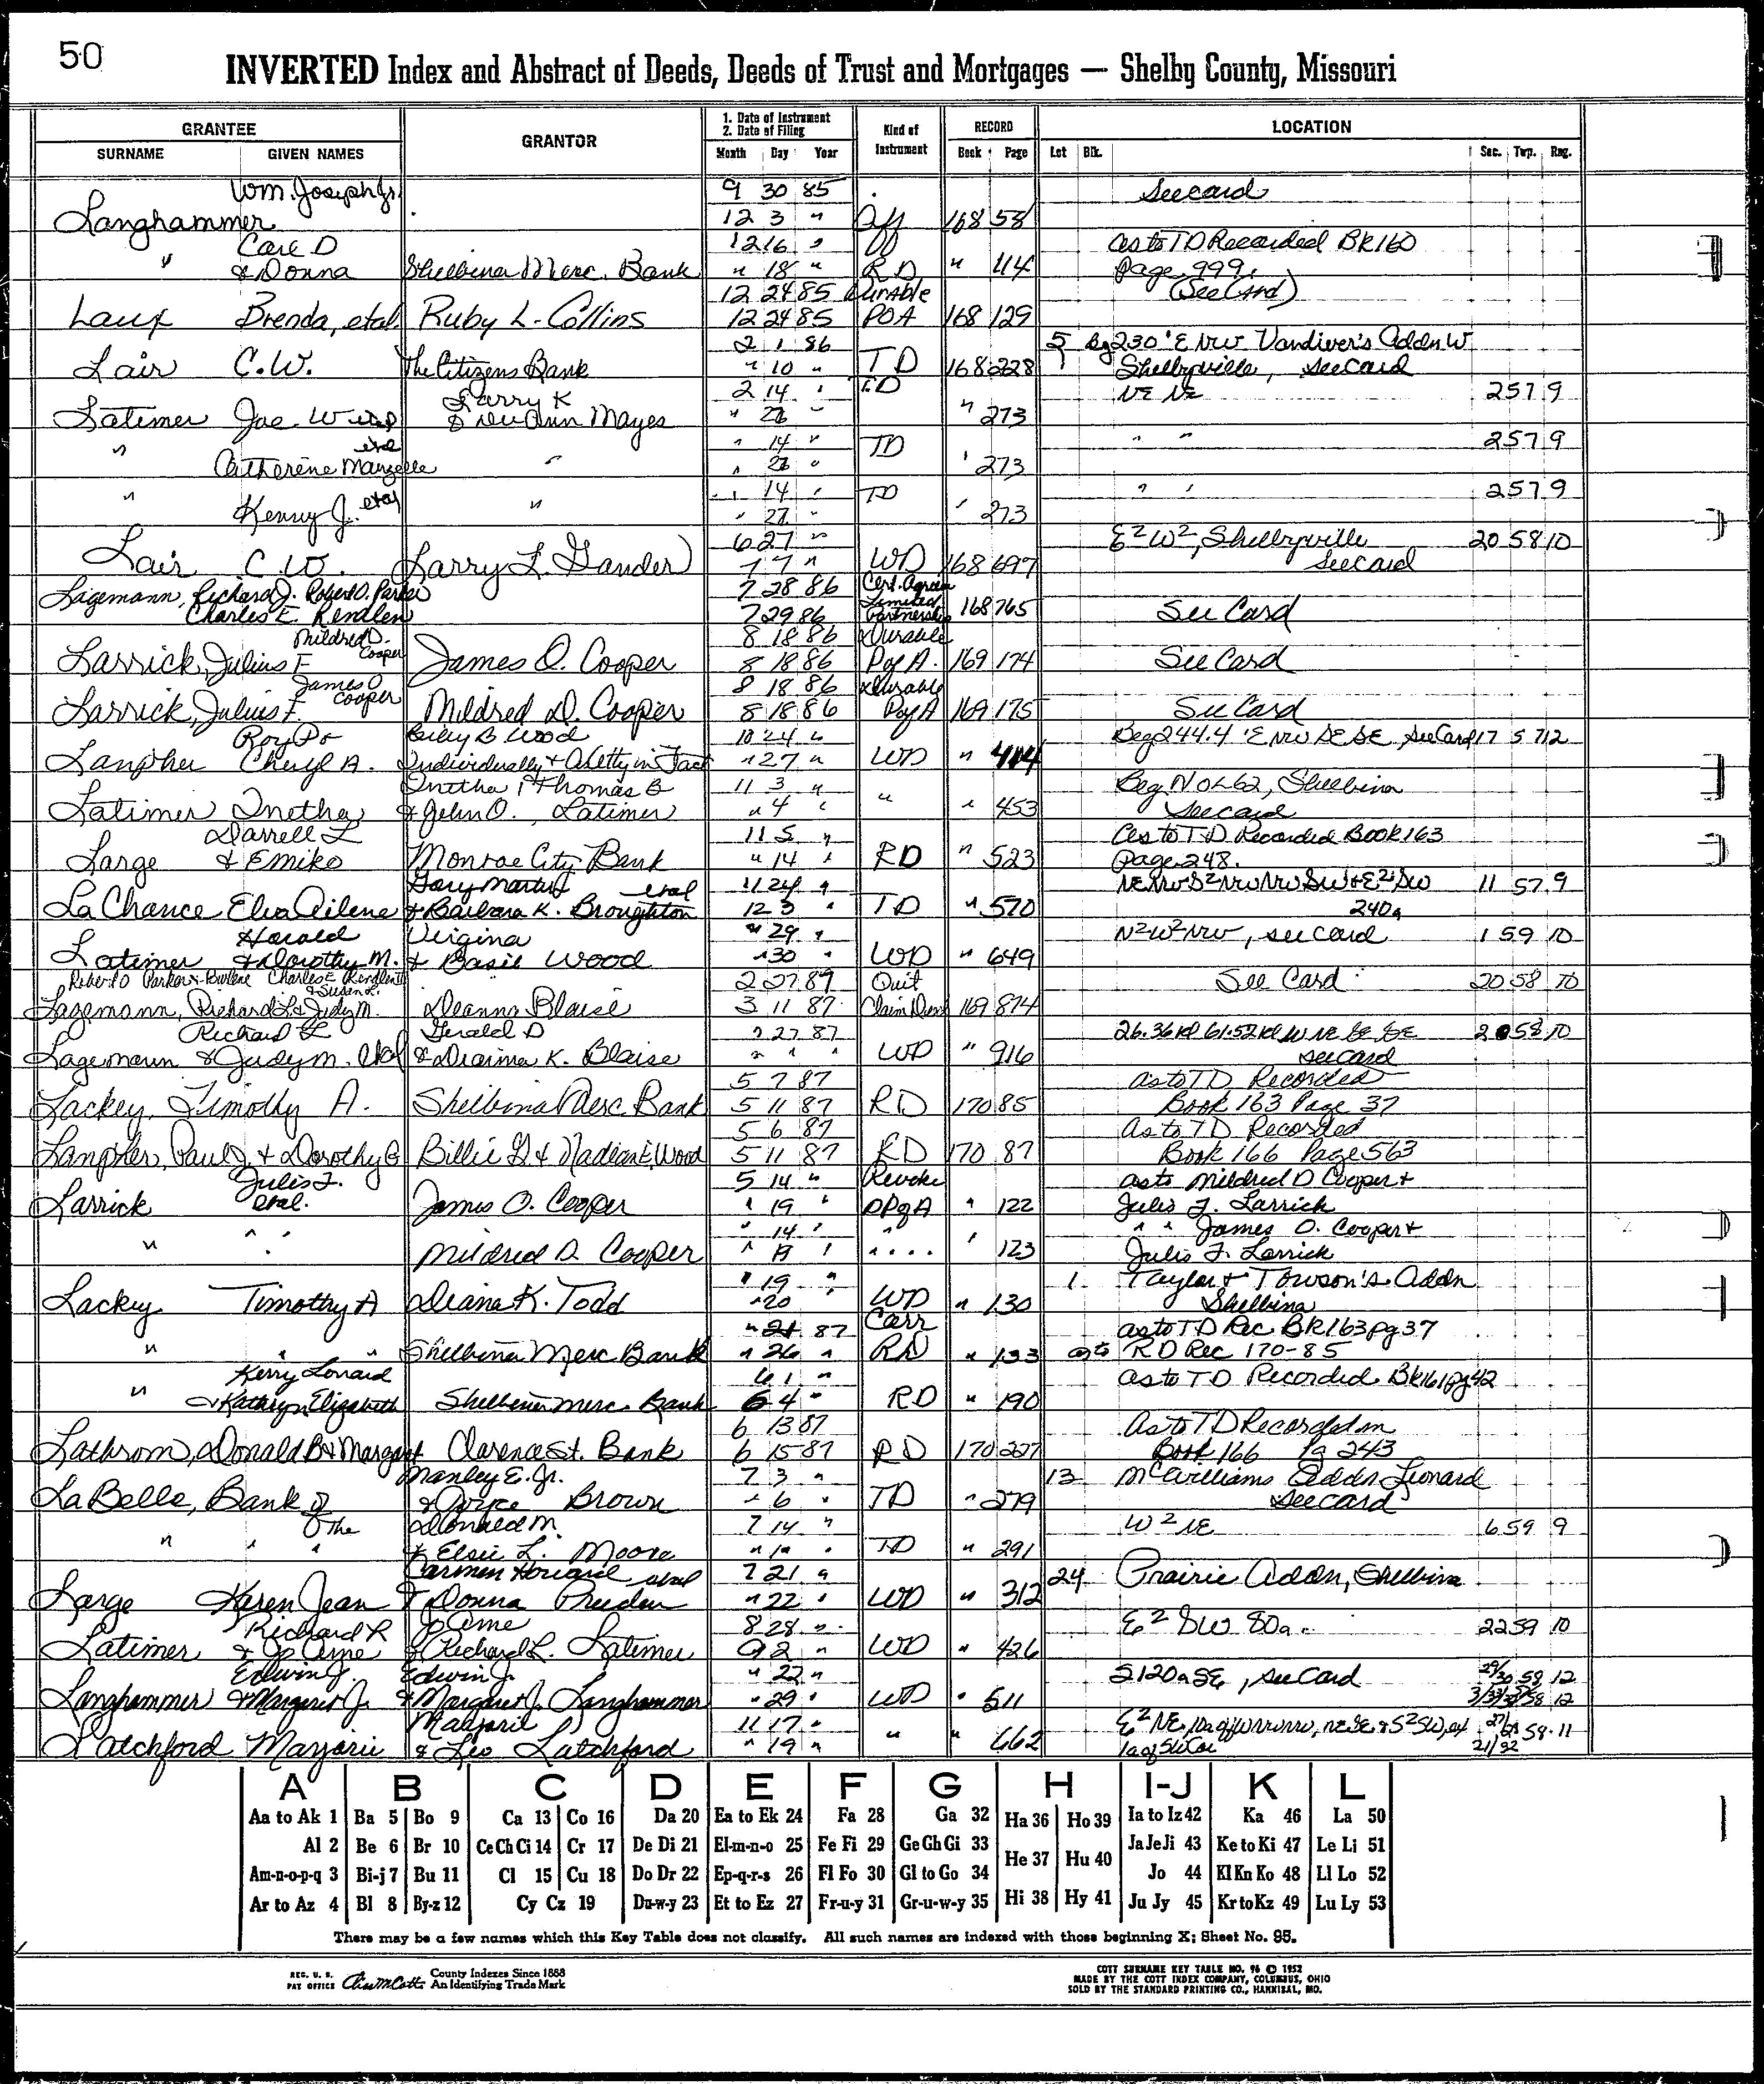 50
INVERTED Index and Abstract of Deeds, Deeds of Trust and Mortgages — Shelby County, Missouri
GRANTEE GRANTOR 1. Date of Instrument 2. Date of Filing Kind of Instrument RECORD LOCATION
SURNAME GIVEN NAMES Month Day Year Book Page Lot Blk. Sec. Twp. Rng.
Wm. Joseph Jr. 9 30 85 See card
Langhammer 12 3 " Aff 168 58
Carl D 12 16 " as to TD Recorded BK 160
" & Donna Shelbina Merc. Bank " 18 " RD " 114 page 999.
12 24 85 Durable (See Card)
Laux Brenda, etal Ruby L. Collins 12 24 85 POA 168 129
2 1 86 5 Bg 230' E NW Vandiver's Addn W
Lair C.W. The Citizens Bank " 10 " TD 168 228 1 Shelbyville, see card
Larry K 2 14 " TD NE NE 2 57 9
Latimer Joe W etal & DeeAnn Mayes " 26 " " 273
" etal " 14 " TD " " 2 57 9
Catherine " " 273
" etal " 14 " TD " " 2 57 9
Kenny J. " " 27 " " 273
6 27 " E2 W2, Shelbyville 20 58 10
Lair C.W. Larry L. Gander 7 7 " WD 168 697 see card
Lagemann, Richard J. Robert D. Parker 7 28 86 Cert. Agreem
Charles E. Rendlen 7 29 86 Limited Partnership 168 765 See Card
Mildred D. Cooper 8 18 86 Durable
Larrick, Julius F. James O. Cooper 8 18 86 P of A. 169 174 See Card
James O Cooper 8 18 86 Durable
Larrick, Julius F. Mildred D. Cooper 8 18 86 P of A 169 175 See Card
Roy D & Wood 10 24 " Beg 244.4' E NW SE SE, See Card 17 57 12
Lanpher Cheryl A. Individually & Atty in Fact " 27 " WD " 414
Inetha Thomas G 11 3 " Beg N 062, Shelbina
Latimer Inetha & John O. Latimer " 4 " " " 453 see card
Darrell L 11 5 " as to TD Recorded Book 163
Large & Emiko Monroe City Bank " 14 " RD " 523 page 248.
Gary Martin etal 11 24 " NENW S2 NW NW SW & E2 SW 11 57 9
LaChance Elva Ailene & Barbara K. Broughton 12 3 " TD " 570 240a
Harold Virgina " 29 " N2 W2 NW, see card 1 59 10
Latimer & Dorothy M. & Basil Wood " 30 " WD " 649
Robert D Parker & Charles E Rendlen & Susan L. 2 27 87 Quit See Card 20 58 10
Lagemann, Richard L & Judy M. Deanna Blaise 3 11 87 Claim Deed 169 874
Richard L Gerald D " 27 87 26.36 61.52 W NE SE SE 20 58 10
Lagemann & Judy M. etal & Deanna K. Blaise " " " WD " 916 see card
5 7 87 as to TD Recorded
Lackey, Timothy A. Shelbina Merc Bank 5 11 87 RD 170 85 Book 163 Page 37
5 6 87 as to TD Recorded
Lanpher, Paul J & Dorothy G Billie G & Nadean E. Wood 5 11 87 RD 170 87 Book 166 Page 563
Julis F. 5 14 " Revoke as to Mildred D Cooper &
Larrick etal. James O. Cooper " 19 " DPofA " 122 Julis F. Larrick
" " " " 14 " " " James O. Cooper &
Mildred D. Cooper " 19 " " " " " ' 123 Julis F. Larrick
" 19 " 1 Taylor & Towson's Addn
Lackey Timothy A Diana K. Todd " 20 " WD " 130 Shelbina
" 21 87 Corr as to TD Rec BK 163 pg 37
" " " Shelbina Merc Bank " 26 " RD " 133 as to RD Rec 170-85
Kerry Lonard 6 1 " as to TD Recorded BK 161 pg 42
" & Kathryn Elizabeth Shelbina Merc. Bank 6 4 " RD " 190
6 13 87 As to TD Recorded in
Lathrom, Donald B & Margaret Clarence St. Bank 6 15 87 RD 170 227 Book 166 Pg 243
Manley E. Jr. 7 3 " 13 McWilliams Addn Leonard
LaBelle, Bank of & Joyce Brown " 6 " TD " 279 see card
The Donald M. 7 14 " W2 NE 6 59 9
" " " & Elsie L. Moore " " " TD " 291
Carmen Howard etal 7 21 " 24 Prairie Addn, Shelbina
Large Karen Jean & Donna Preeden " 22 " WD " 312
Richard R Jo Ame 8 28 " E2 SW 80a. 22 59 10
Latimer & Jo Ame & Richard L. Latimer 9 2 " WD " 426
Edwin J. Edwin J. " 22 " S120a SE, see card 29/30 58 12
Langhammer & Margaret J. & Margaret J. Langhammer " 29 " WD " 511 58 12
Marjorie 11 17 " E2 NE, NE SE & S2 SW, 58 11
Latchford Marjorie & Leo Latchford " 19 " " " 662 21/22
A B C D E F G H I-J K L
Aa to Ak 1 Ba 5 Bo 9 Ca 13 Co 16 Da 20 Ea to Ek 24 Fa 28 Ga 32 Ha 36 Ho 39 Ia to Iz 42 Ka 46 La 50
Al 2 Be 6 Br 10 Ce Ch Ci 14 Cr 17 De Di 21 El-m-n-o 25 Fe Fi 29 Ge Gh Gi 33 He 37 Hu 40 Ja Je Ji 43 Ke to Ki 47 Le Li 51
Am-n-o-p-q 3 Bi-j 7 Bu 11 Cl 15 Cu 18 Do Dr 22 Ep-q-r-s 26 Fl Fo 30 Gl to Go 34 Jo 44 Kl Kn Ko 48 Ll Lo 52
Ar to Az 4 Bl 8 By-z 12 Cy Cz 19 Du-w-y 23 Et to Ez 27 Fr-u-y 31 Gr-u-w-y 35 Hi 38 Hy 41 Ju Jy 45 Kr to Kz 49 Lu Ly 53
There may be a few names which this Key Table does not classify. All such names are indexed with those beginning X; Sheet No. 95.
REG. U. S. PAT OFFICE County Indexes Since 1888 An Identifying Trade Mark
COTT SURNAME KEY TABLE NO. 96 © 1952
MADE BY THE COTT INDEX COMPANY, COLUMBUS, OHIO
SOLD BY THE STANDARD PRINTING CO., HANNIBAL, MO.